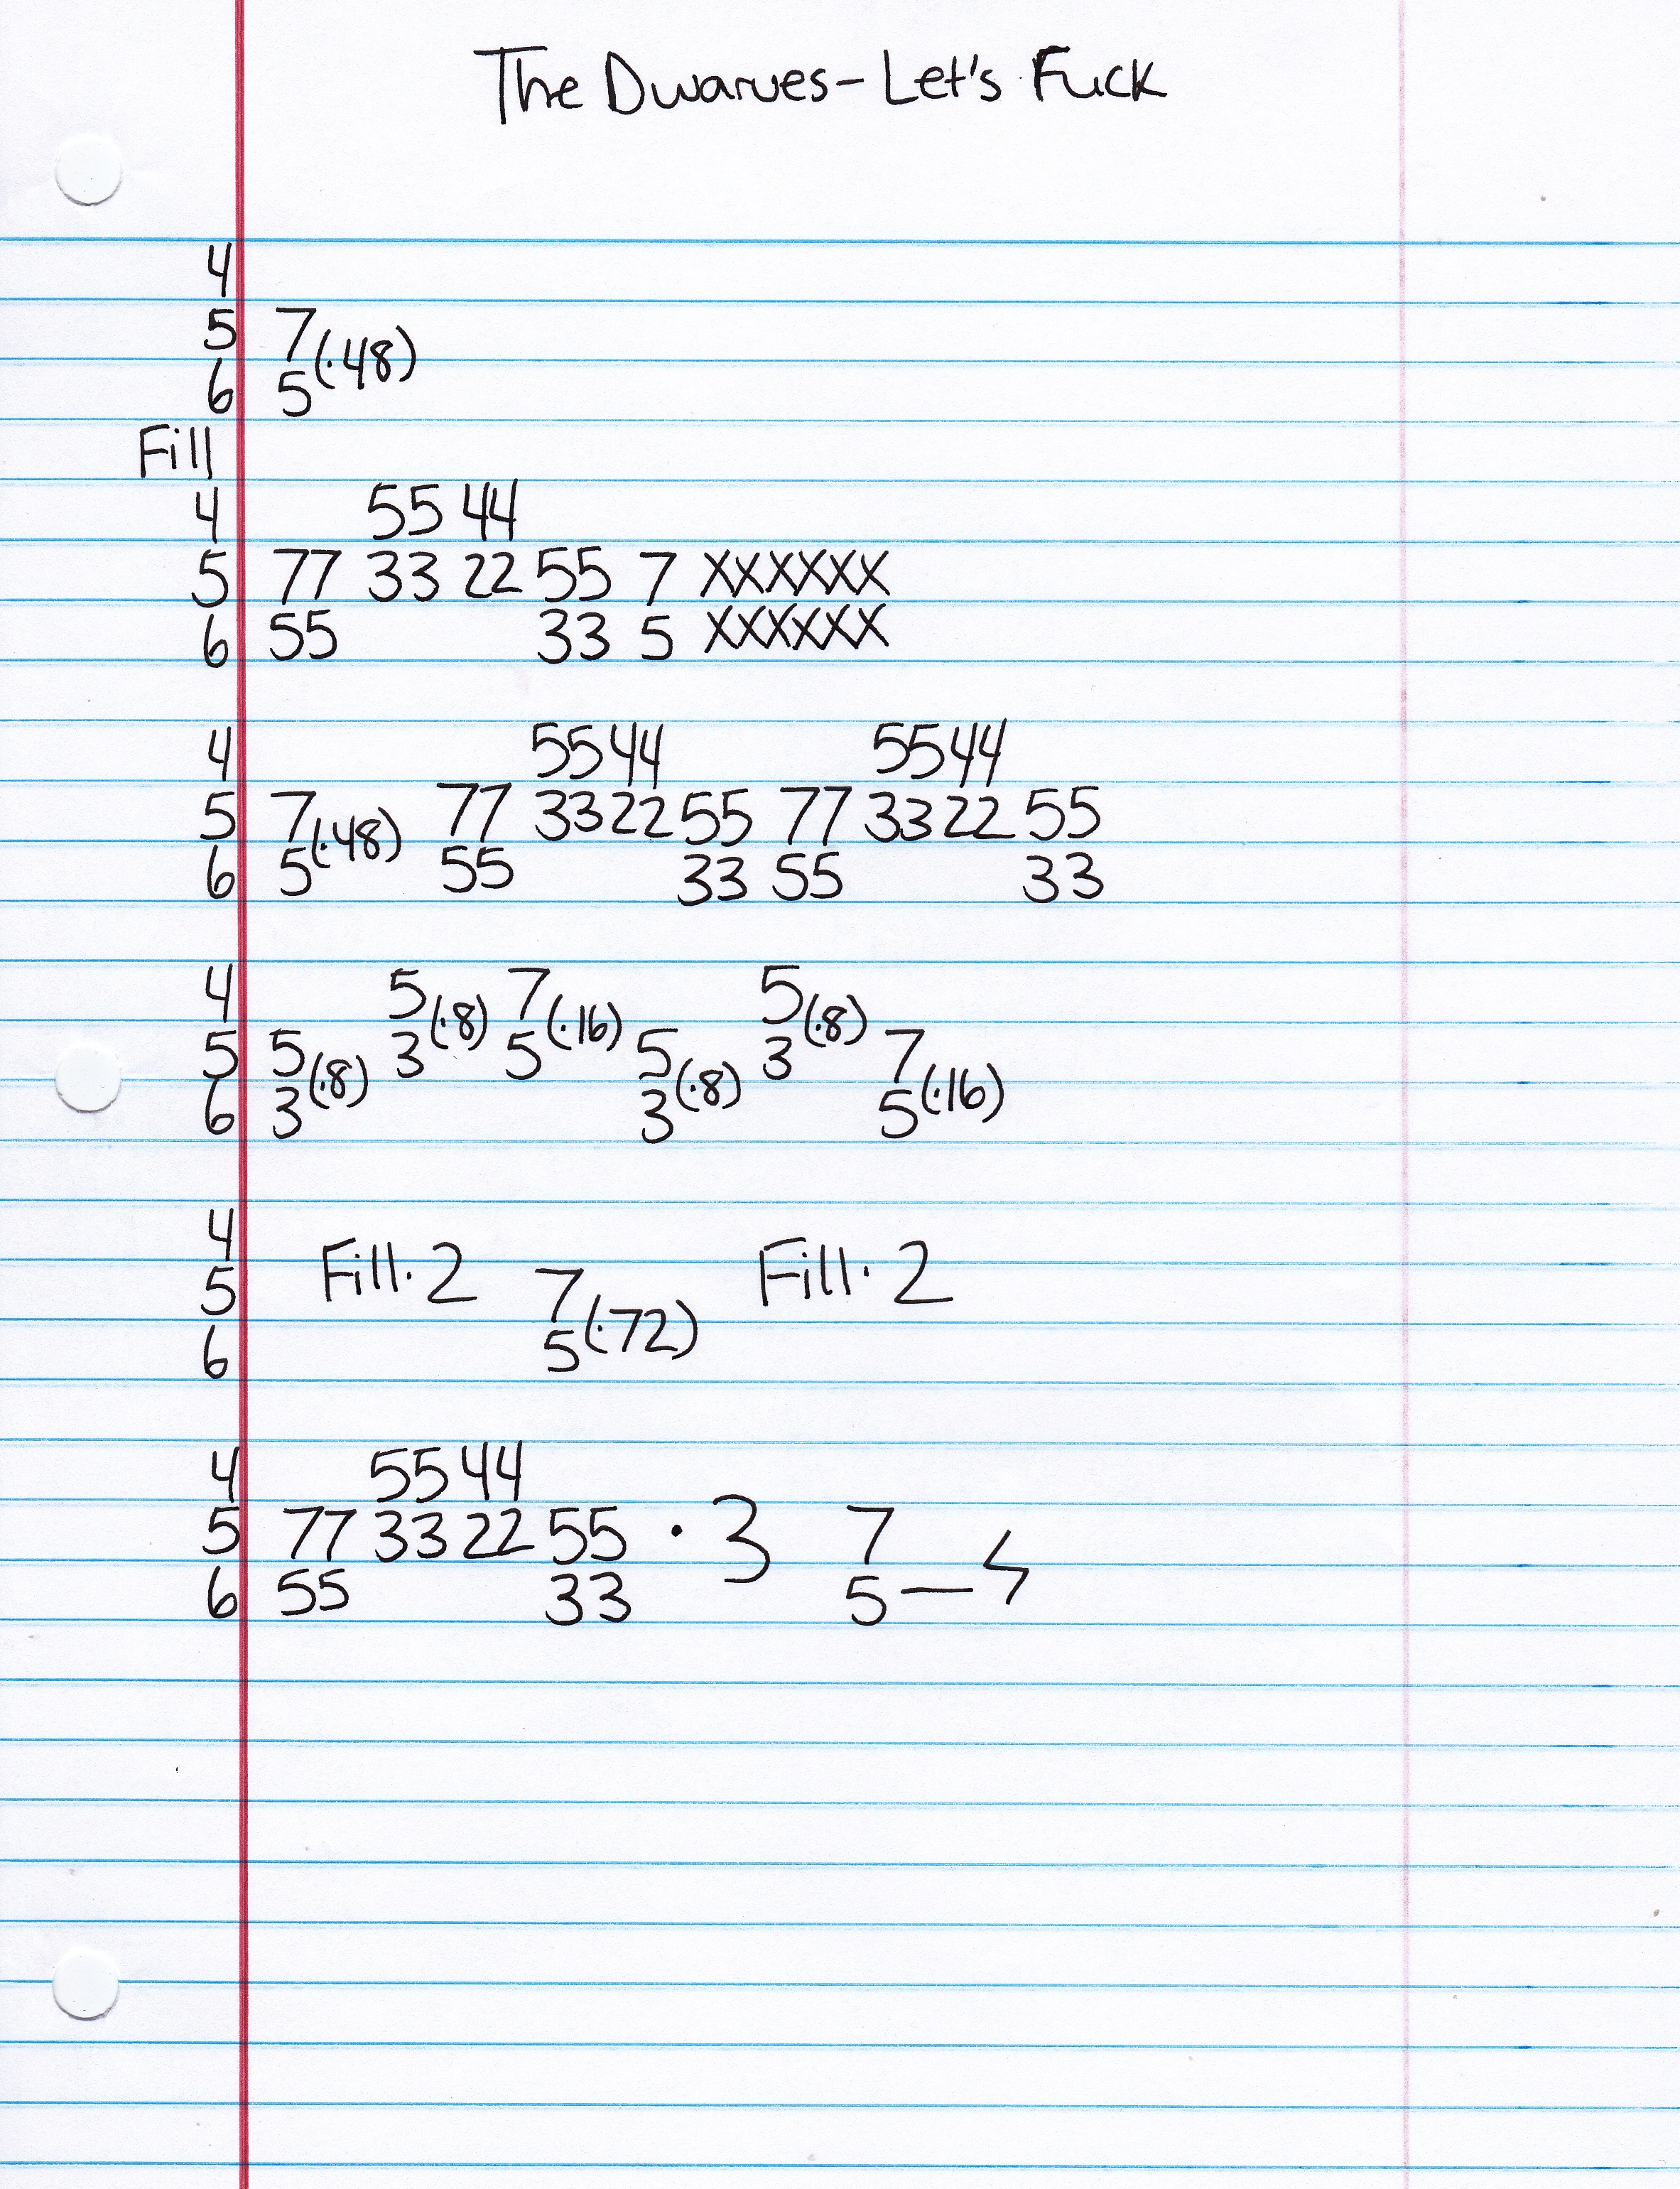 The Dwarves - Let's Fuck
4
5 7
(·48)
6 5
Fill
4 55 44
5 77 33 22 55 7 XXXXXX
6 55 33 5 XXXXXX
4 55 44 55 44
5 7 77 33 22 55 77 33 22 55
(·48)
6 5 55 33 55 33
4 5 7 5
(·8) (·16) (·8)
5 5 3 5 5 3 7
(·8) (·8) (·16)
6 3 3 5
4
Fill·2 Fill·2
5 7
(·72)
6 5
4 55 44
5 77 33 22 55 · 3 7
6 55 33 5 —